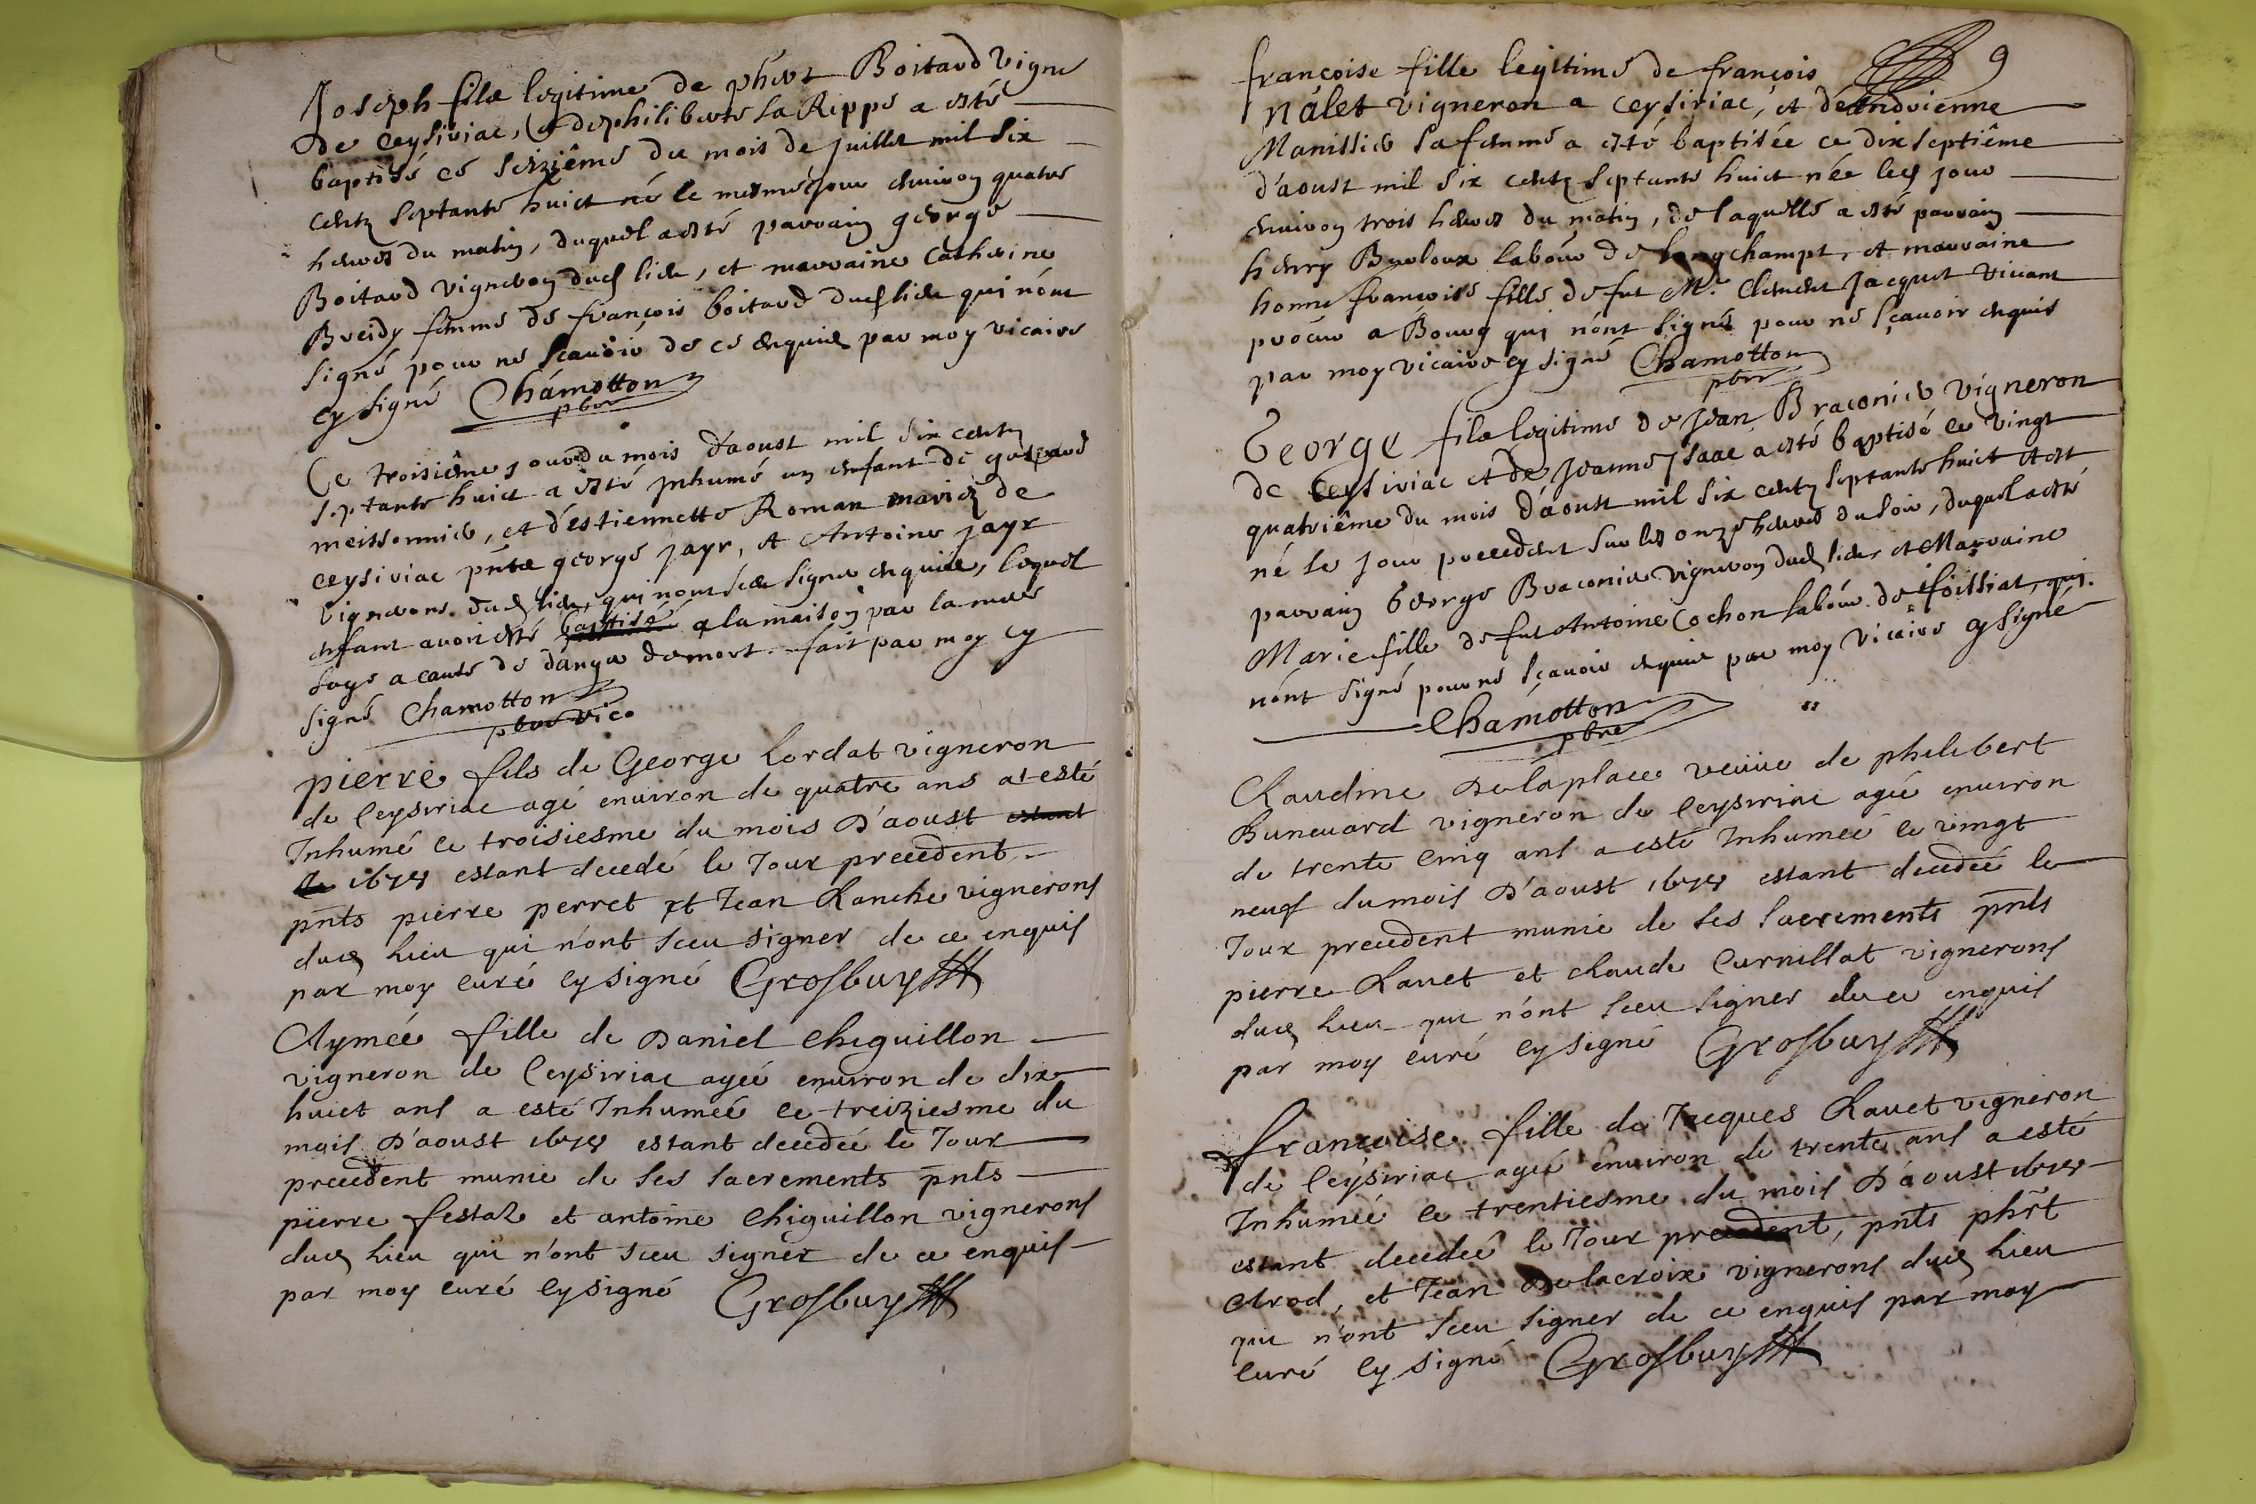 Joseph filz legitime de phert Boitard vigne
de Ceysiriac, et de philiberte la Rippe a esté
baptisé ce seizième du mois de juillet mil six
centz septante huict né le mesme jour environ quatre
heures du matin, duquel a esté parrain george
Boitard vigneron dud lieu, et marraine Catherine
Breidy femme de françois boitard dud lieu qui n'ont
signé pour ne sçavoir de ce enquis par moy vicaire
cy signé Chamotton
pbre
Ce troisième jour du mois d'aoust mil six centz
septante huict a esté inhumé un enfant de gaspard
meissonnier, et d'estiennette Roman mariez de
ceysiriac pntz george jayr, et Antoine jayr
vignerons dud lieu, qui n'ont sceu signer enquis, lequel
enfant avoit esté baptisé a la maison par la mere
sage a cause de danger de mort. fait par moy cy
signé Chamotton
pbre vic.
pierre fils de George Lordat vigneron
de Ceysiriac agé environ de quatre ans a esté
Inhumé le troisiesme du mois D'aoust estant
le 1678 estant decedé le Jour precedent
pnts pierre perret et Jean Ranche vignerons
dud Lieu qui n'ont sceu signer de ce enquis
par moy curé cy signé Grosbuy
Aymée fille de Daniel Chiguillon
vigneron de Ceysiriac agéé environ de dix
huict ans a esté Inhuméé le treiziesme du
mois D'aoust 1678 estant decedéé le Jour
precedent munie de ses sacrements pnts
pierre festaz et antoine Chiguillon vignerons
dud Lieu qui n'ont sceu signer de ce enquis
par moy curé cy signé Grosbuy
françoise fille legitime de françois 9
nâlet vigneron a Ceysiriac, et de Andrienne
Manissier sa femme a esté baptisée ce dix septième
d'aoust mil six centz septante huict née led jour
environ trois heures du matin, de laquelle a esté parrain
henry Burloux labour de longchampt, et marraine
honne françoise fille de fut Mr Clement Jacquet vivant
procur a Bourg qui n'ont signé pour ne sçavoir enquis
par moy vicaire cy signé Chamotton
pbre
George filz legitime de Jean Braconier vigneron
de Ceysiriac et de Jeanne Isaac a esté baptisé ce vingt
quatrième du mois d'aoust mil six centz septante huict et est
né le jour precedent sur les onze heures du soir, duquel a esté
parrain George Braconier vigneron dud lieu et Marraine
Marie fille de fut Antoine Cochon labour de foissiat, qui
n'ont signé pour ne sçavoir enquis par moy vicaire cy signé
Chamotton
pbre
Claudine Delaplace veuve de philebert
Bunevard vigneron de Ceysiriac agéé environ
de trente Cinq ans a esté Inhuméé le vingt
neuf du mois D'aoust 1678 estant decedéé le
Jour precedent munie de ses sacrements pnts
pierre Ravet et claude Curnillat vignerons
dud Lieu qui n'ont sceu signer de ce enquis
par moy curé cy signé Grosbuy
françoise fille de Jacques Ravet vigneron
de Ceysiriac agéé environ de trente ans a esté
Inhuméé le trentiesme du mois D'aoust 1678
estant decedéé le Jour precedent, pnts phrt
Arod, et Jean Delacroix vignerons dud Lieu
qui n'ont sceu signer de ce enquis par moy
curé cy signé Grosbuy